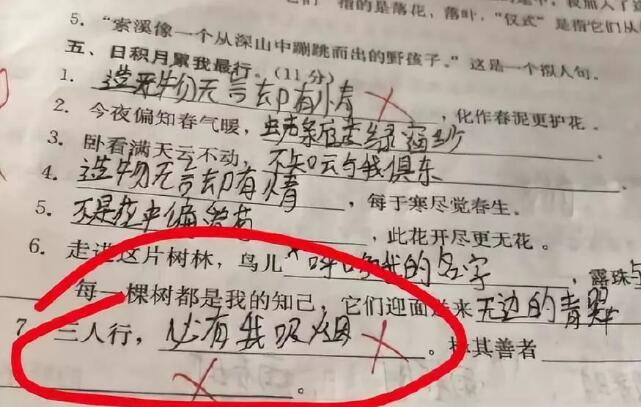 指的是落花，落叶，“仪式”是指它们从
5. “索溪像一个从深山中蹦跳而出的野孩子。”这是一个拟人句。
五、日积月累我最行。(11分)
1. 造物无言却有情，化作春泥更护花。
2. 今夜偏知春气暖，虫声新透绿窗纱。
3. 卧看满天云不动，不知云与我俱东
4. 造物无言却有情，每于寒尽觉春生。
5. 不是花中偏爱菊，此花开尽更无花。
6. 走进这片树林，鸟儿呼唤我的名字，露珠与
每一棵树都是我的知己，它们迎面送来无边的青翠
7. 三人行，必有我吸烟。择其善者
。